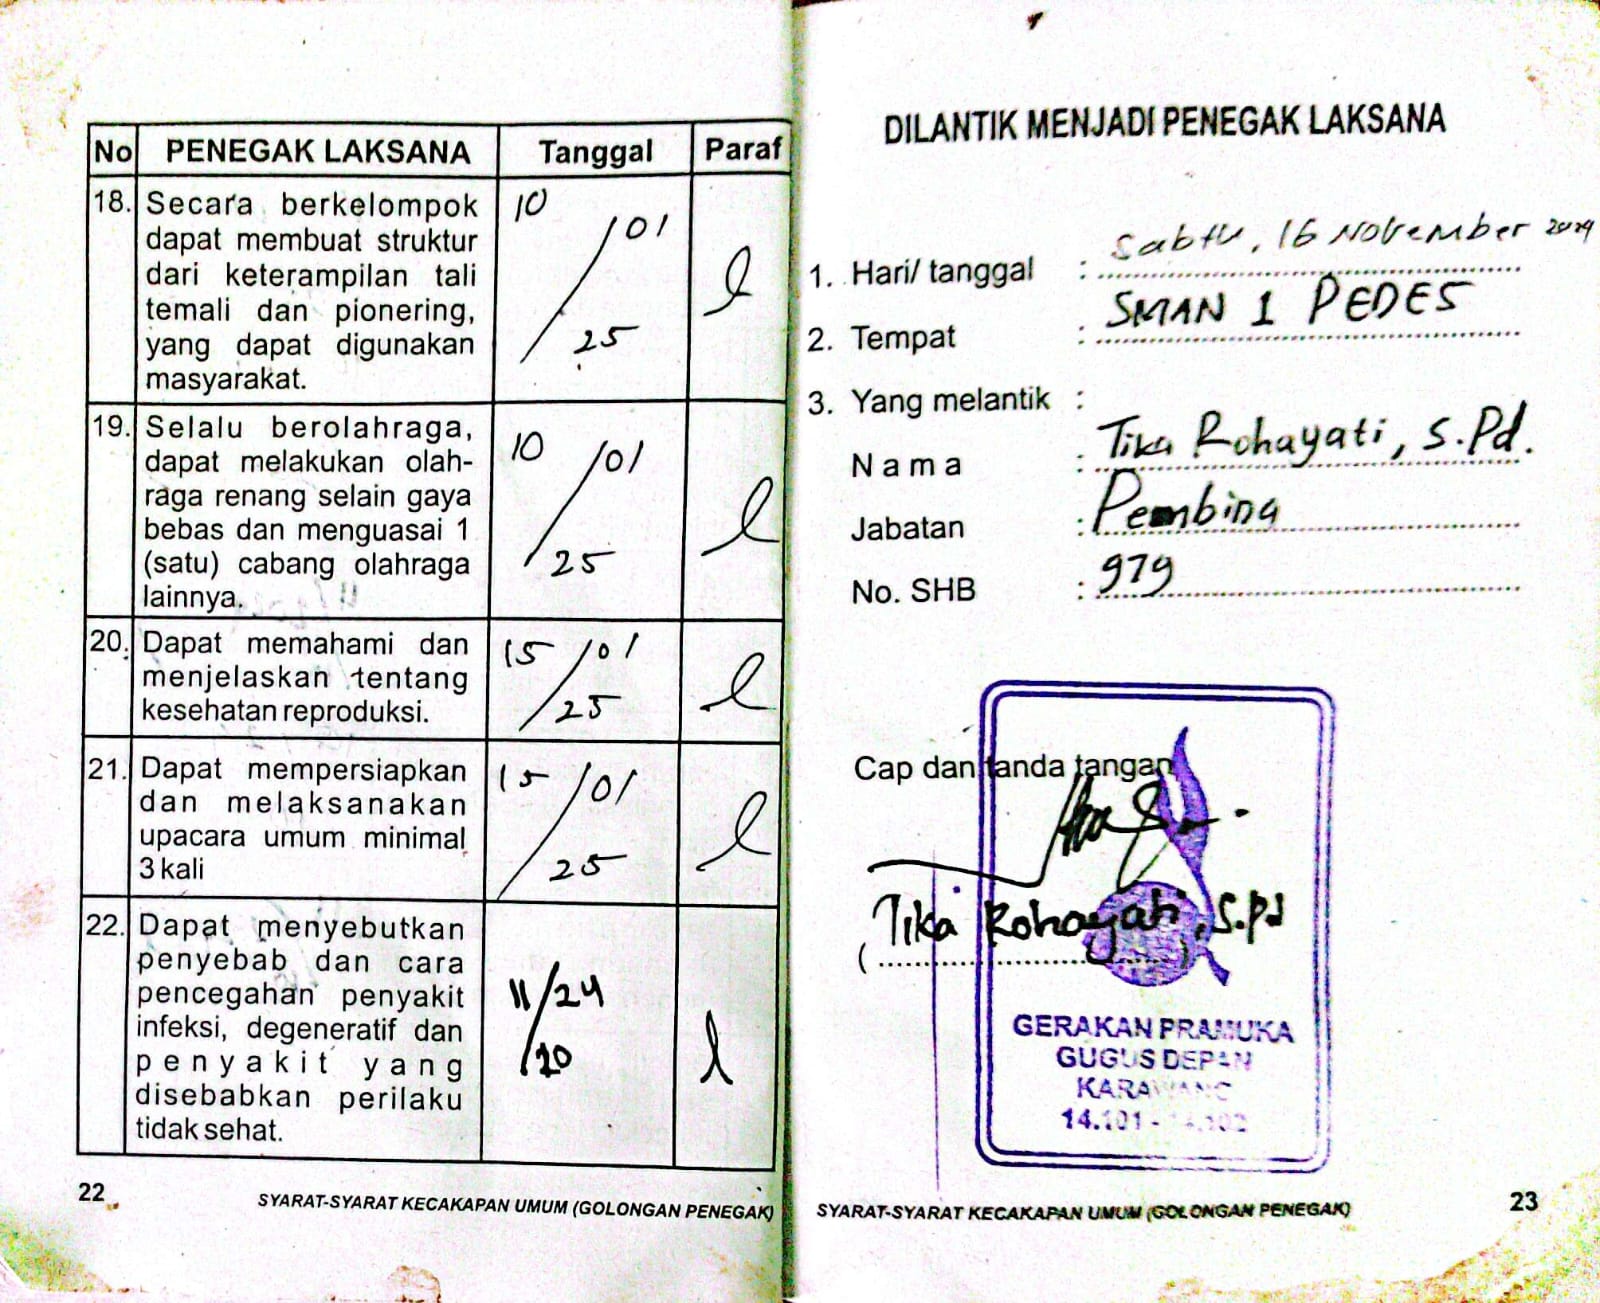 No PENEGAK LAKSANA Tanggal Paraf
18. Secara berkelompok
dapat membuat struktur
dari keterampilan tali
temali dan pionering,
yang dapat digunakan
masyarakat.
10/01/25
19. Selalu berolahraga,
dapat melakukan olah-
raga renang selain gaya
bebas dan menguasai 1
(satu) cabang olahraga
lainnya.
10/01/25
20. Dapat memahami dan
menjelaskan tentang
kesehatan reproduksi.
15/01/25
21. Dapat mempersiapkan
dan melaksanakan
upacara umum minimal
3 kali
15/01/25
22. Dapat menyebutkan
penyebab dan cara
pencegahan penyakit
infeksi, degeneratif dan
penyakit yang
disebabkan perilaku
tidak sehat.
11/24
/20
22
SYARAT-SYARAT KECAKAPAN UMUM (GOLONGAN PENEGAK)
DILANTIK MENJADI PENEGAK LAKSANA
1. Hari/ tanggal : Sabtu, 16 November
2. Tempat : SMAN 1 PEDES
3. Yang melantik :
Nama : Tika Rohayati, S.Pd.
Jabatan : Pembina
No. SHB : 979
Cap dan tanda tangan
(Tika Rohayati, S.Pd)
GERAKAN PRAMUKA
GUGUS DEPAN
KARAWANG
14.101 - 14.102
SYARAT-SYARAT KECAKAPAN UMUM (GOLONGAN PENEGAK)
23